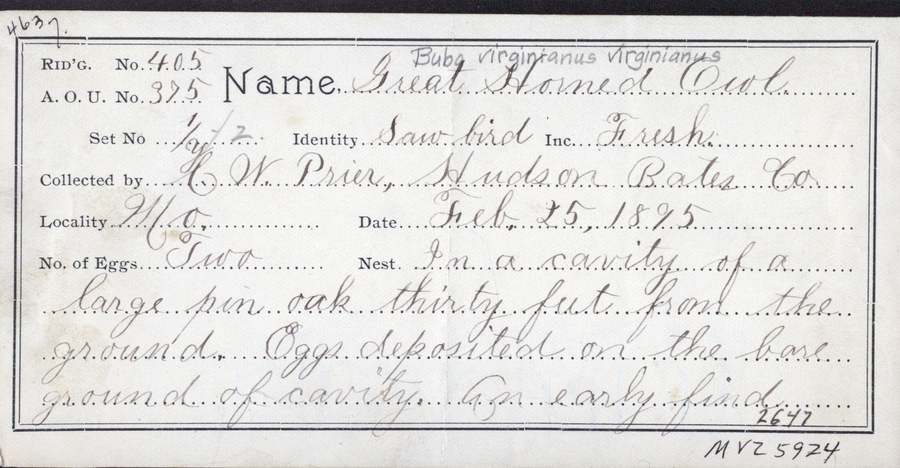 4637.
Bubo virginianus virginianus
RID'G. No. 405
A. O. U. No. 375
Name. Great Horned Owl.
Set No 1/2 Identity Saw bird Inc. Fresh.
Collected by H. W. Prier, Hudson Bates Co.
Locality Mo. Date Feb. 25, 1895
No. of Eggs Two Nest. In a cavity of a
large pin oak thirty feet from the
ground. Eggs deposited on the bare
ground of cavity. An early find
2647
MVZ 5924